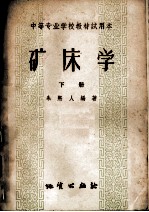 中等专业学校教材試用本
矿床学
下册
朱熙人編著
地質出版社